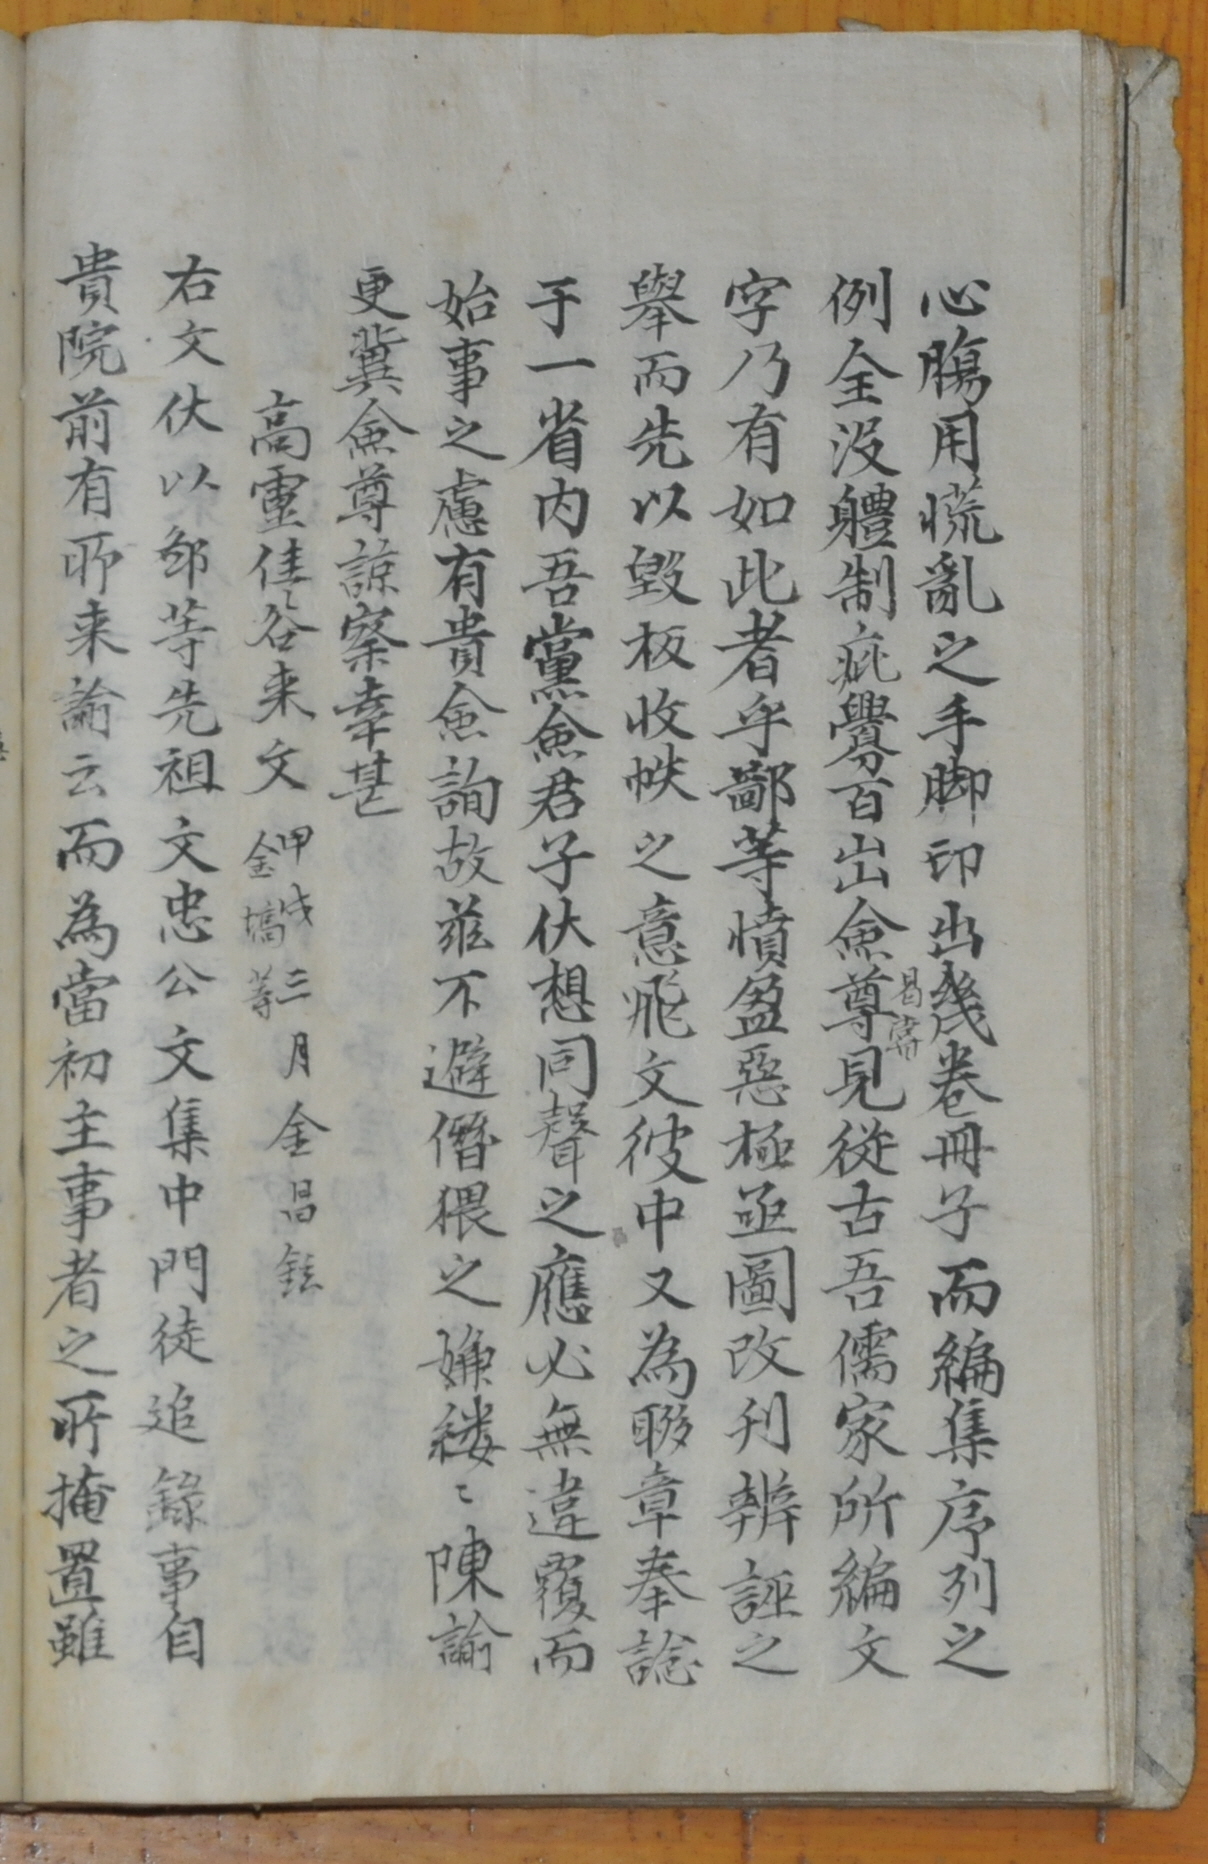 心腸用慌亂之手脚印出幾卷冊子而編集序列之
例全沒軆制疵釁百出僉尊曷嘗見從古吾儒家所編文
字乃有如此者乎鄙等憤盈惡極亟圖改刋辨誣之
擧而先以毁板收帙之意飛文彼中又為聯章奉諗
于一省内吾黨僉君子伏想同聲之應必無違覆而
始事之慮有貴僉詢故玆不避僭猥之嫌縷〻陳諭
更冀僉尊諒察幸甚
高靈佳谷来文 甲戌三月金昌鉉 金墧等
右文伏以鄙等先祖文忠公文集中門徒追錄事自
貴院前有所来諭云而為當初主事者之所掩置雖